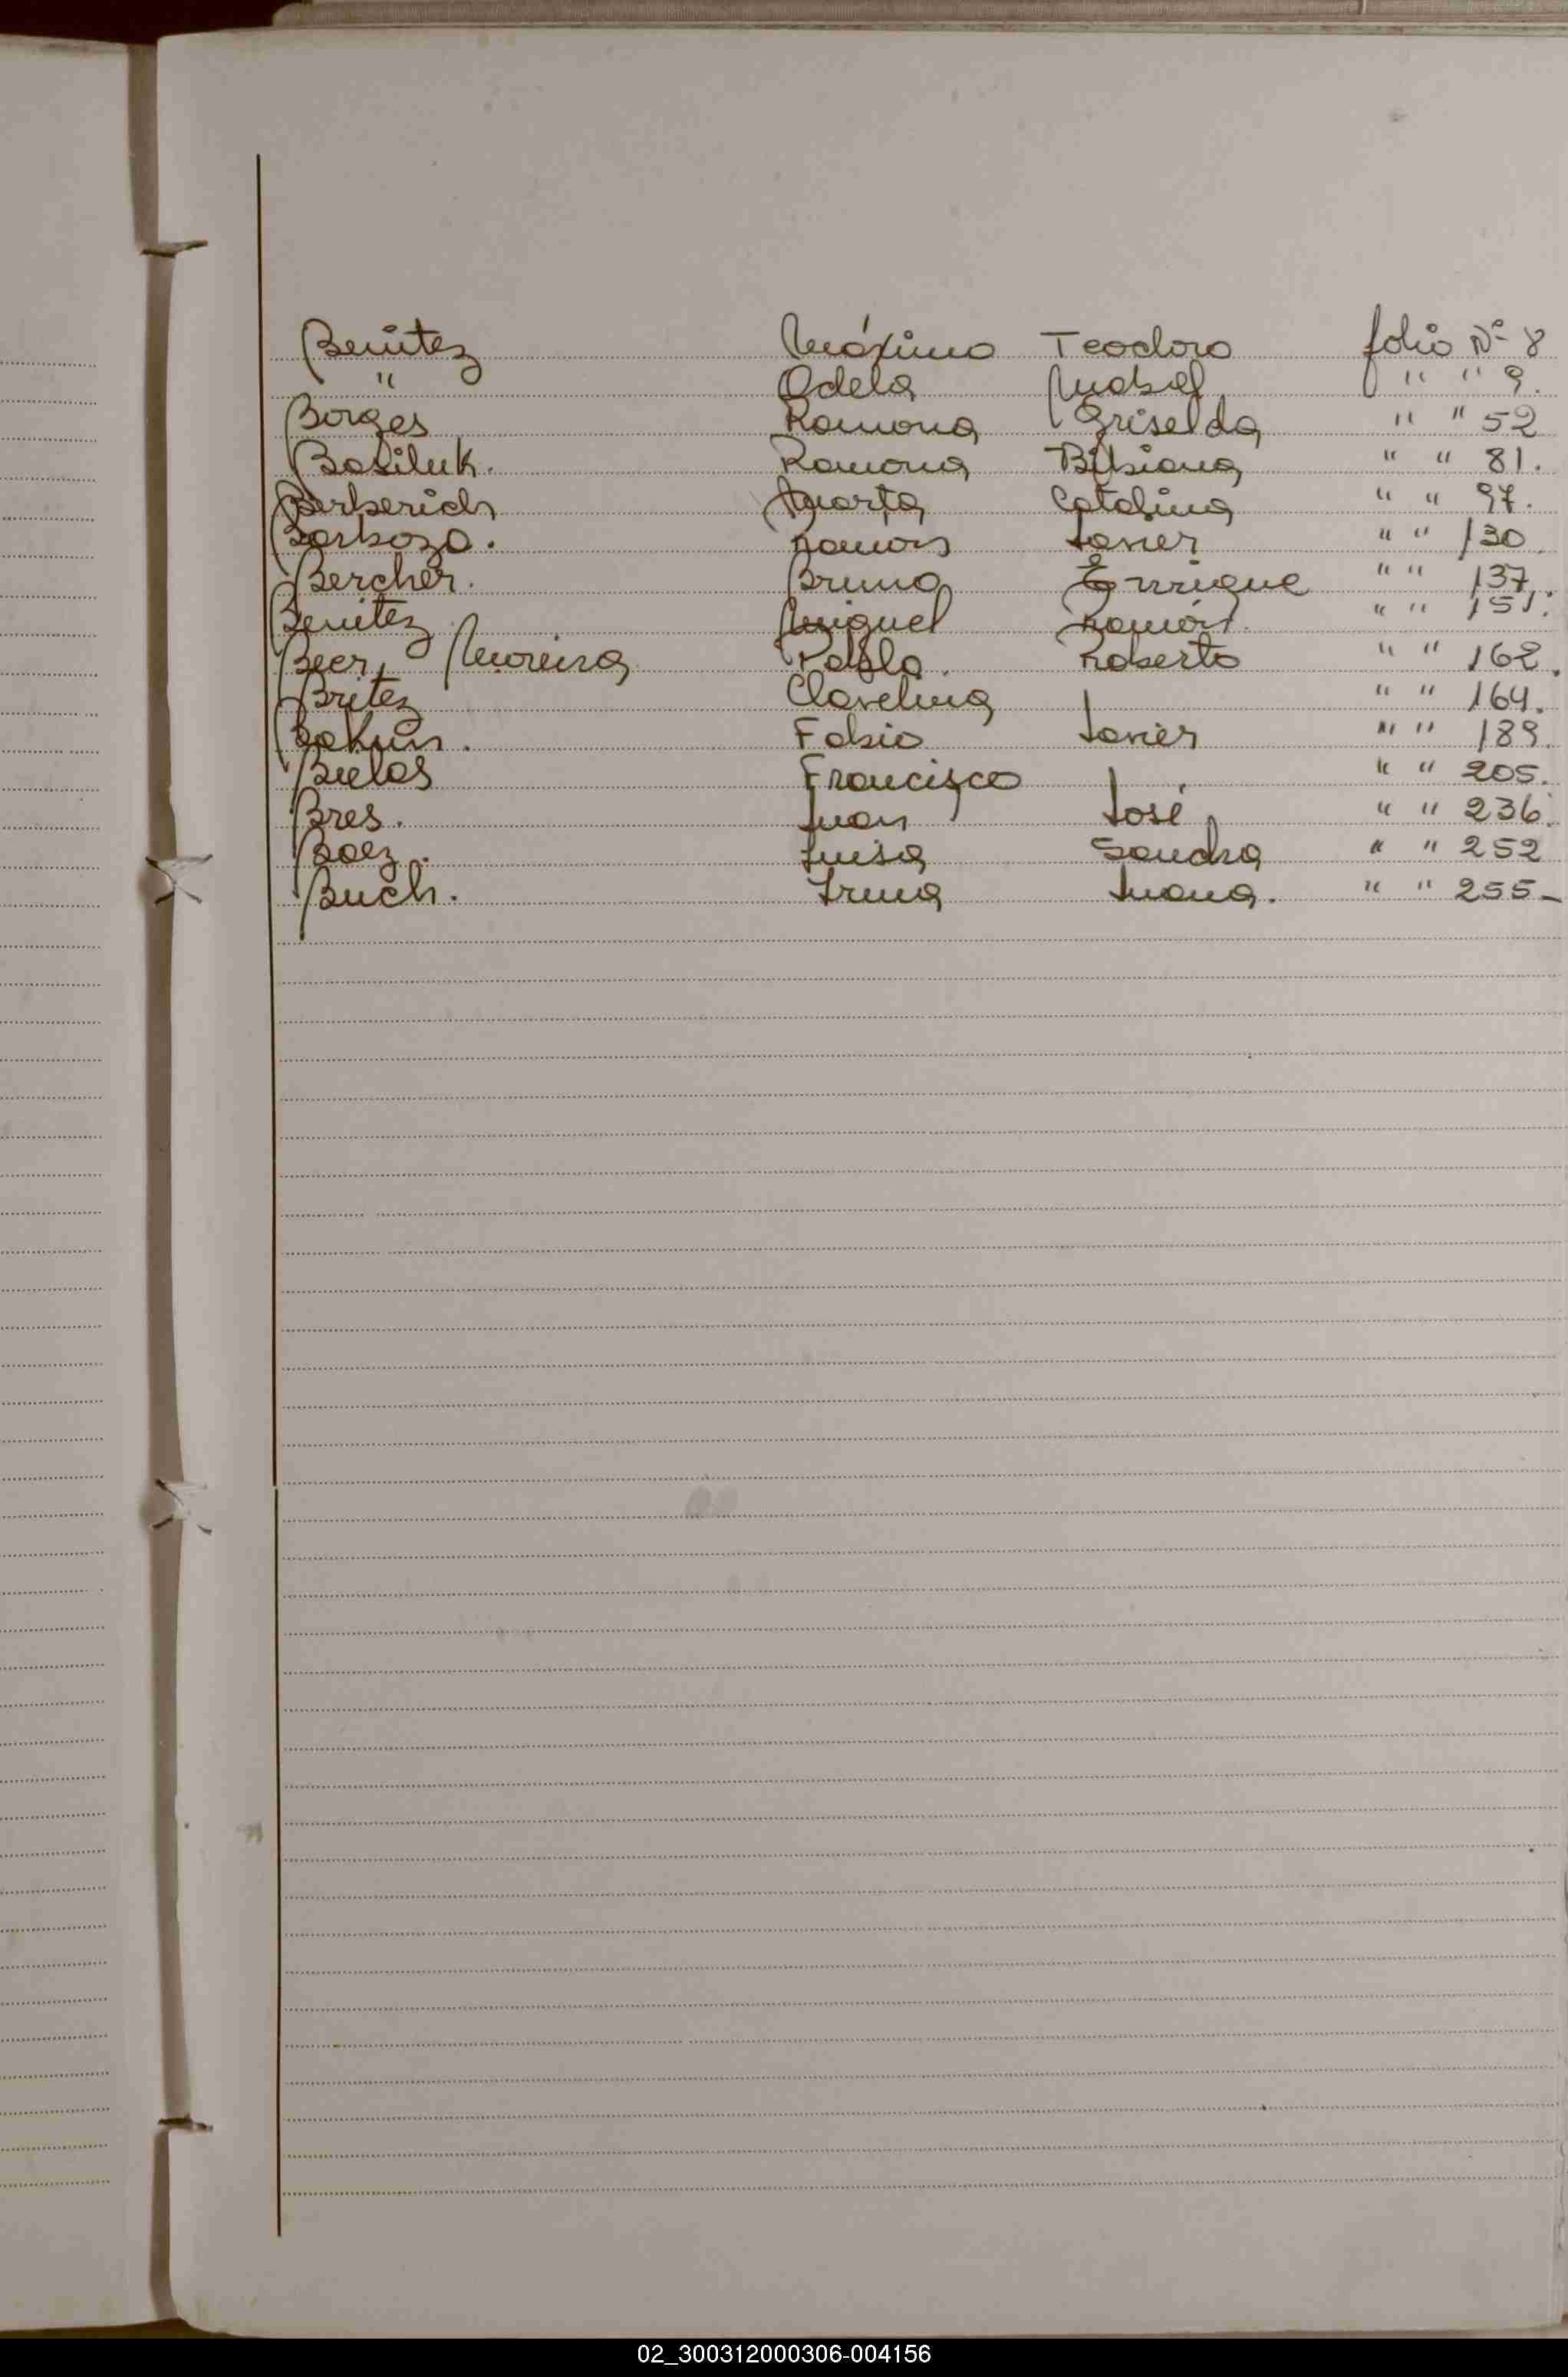 Benitez Máximo Teodoro folio Nº 8
" Odela Mabel " " 9.
Borges Ramona Griselda " " 52
Basiluk. Ramona Bibiana " " 81.
Berberich Marta Catalina " " 97.
Barboza. Ramón Javier " " 130.
Bercher. Bruno Enrique " " 137.
Benitez Miguel Ramón. " " 151.
Beer, Moreira Pablo. Roberto " " 162.
Britez Clavelina " " 164.
Bakun. Fabio Javier " " 189.
Bielas Francisco " " 205.
Bres. Juan José " " 236.
Baez. Luisa Sandra " " 252
Buch. Irma Juana. " " 255-
02_300312000306-004156